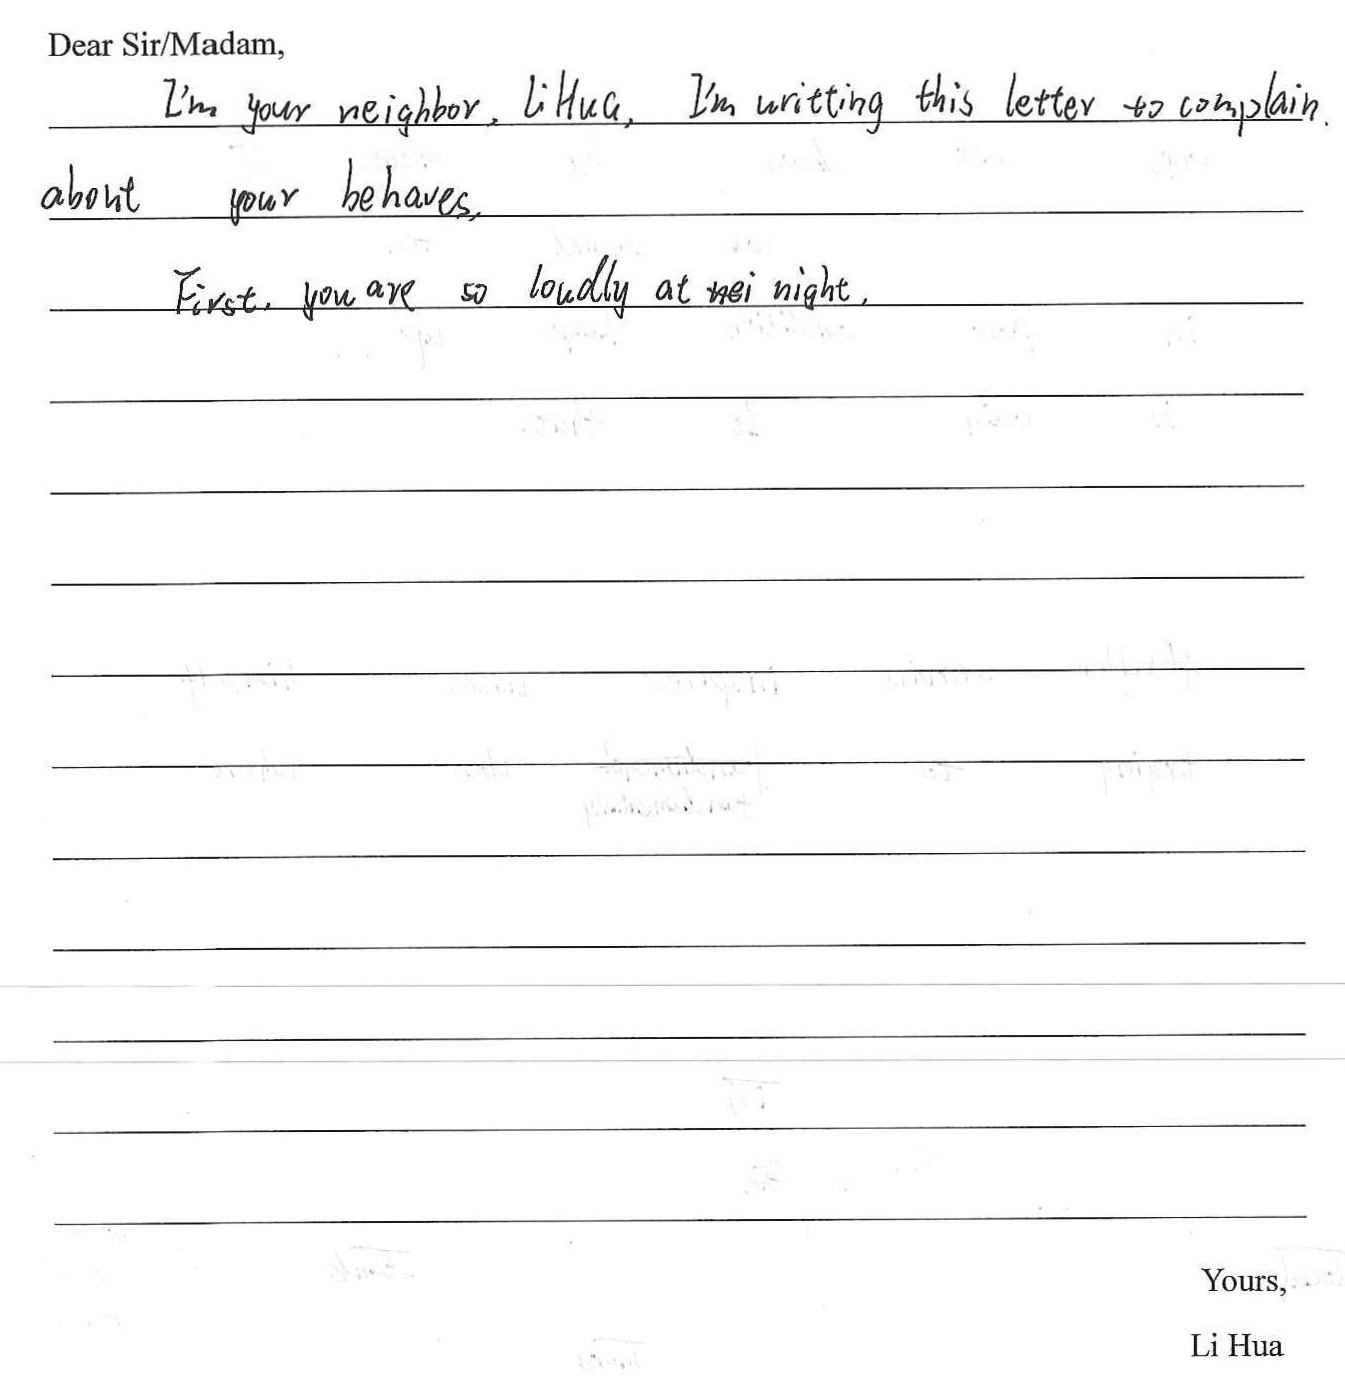 Dear Sir/Madam,
I'm your neighbor, Li Hua, I'm writting this letter to complain.
about your behaves,
First, you are so loudly at nei night,
Yours,
Li Hua